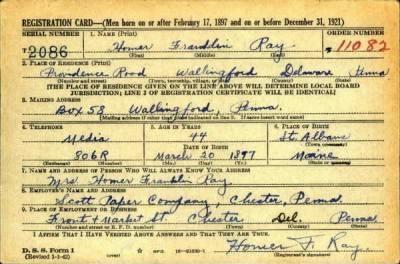 REGISTRATION CARD—(Men born on or after February 17, 1897 and on or before December 31, 1921)
SERIAL NUMBER 1. NAME (Print) ORDER NUMBER
T 2086 Homer Franklin Ray 11082
(First) (Middle) (Last)
2. PLACE OF RESIDENCE (Print)
Providence Road Wallingford Delaware Penna
(Number and street) (Town, township, village, or city) (County) (State)
[THE PLACE OF RESIDENCE GIVEN ON THE LINE ABOVE WILL DETERMINE LOCAL BOARD
JURISDICTION; LINE 2 OF REGISTRATION CERTIFICATE WILL BE IDENTICAL]
3. MAILING ADDRESS
Box 58 Wallingford, Penna.
[Mailing address if other than place indicated on line 2. If same insert word same]
4. TELEPHONE 5. AGE IN YEARS 6. PLACE OF BIRTH
Media 44 St. Albans
DATE OF BIRTH (Town or county)
806R March 20 1897 Maine
(Exchange) (Number) (Mo.) (Day) (Yr.) (State or country)
7. NAME AND ADDRESS OF PERSON WHO WILL ALWAYS KNOW YOUR ADDRESS
Mrs. Homer Franklin Ray
8. EMPLOYER'S NAME AND ADDRESS
Scott Paper Company, Chester, Penna.
9. PLACE OF EMPLOYMENT OR BUSINESS
Front & Market St. Chester Del. Penna
(Number and street or R. F. D. number) (Town) (County) (State)
I AFFIRM THAT I HAVE VERIFIED ABOVE ANSWERS AND THAT THEY ARE TRUE.
D. S. S. Form 1 Homer F. Ray
(Revised 1-1-42) (over) (Registrant's signature)